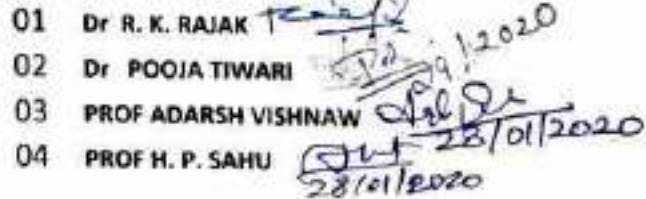 01 Dr R. K. RAJAK
02 Dr POOJA TIWARI
03 PROF ADARSH VISHNAW 28/01/2020
04 PROF H. P. SAHU 28/01/2020